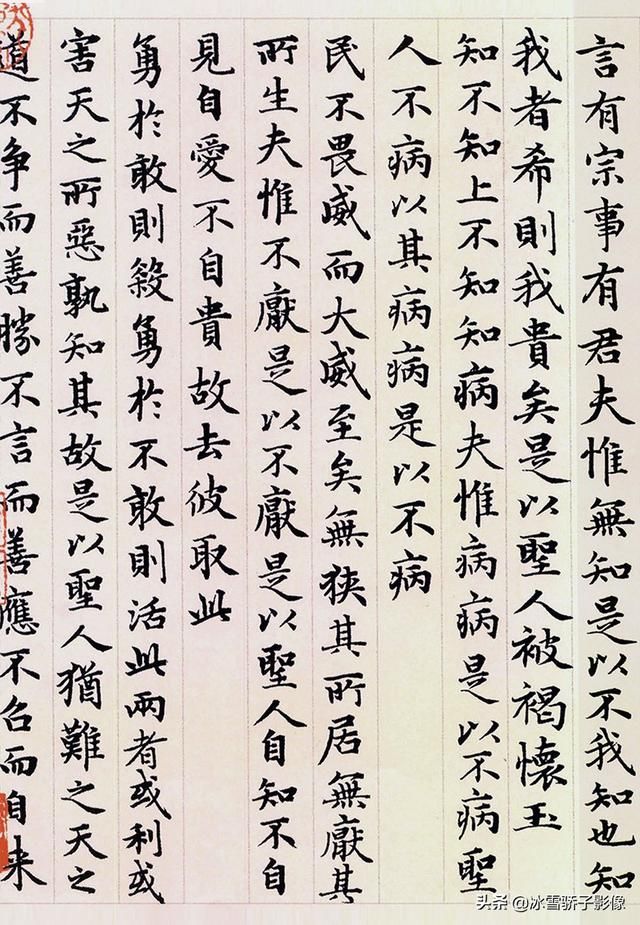 言有宗事有君夫惟無知是以不我知也知
我者希則我貴矣是以聖人被褐懷玉
知不知上不知知病夫惟病病是以不病聖
人不病以其病病是以不病
民不畏威而大威至矣無狹其所居無厭其
所生夫惟不厭是以不厭是以聖人自知不自
見自愛不自貴故去彼取此
勇於敢則殺勇於不敢則活此兩者或利或
害天之所惡孰知其故是以聖人猶難之天之
道不争而善勝不言而善應不召而自来
头条 @冰雪骄子影像